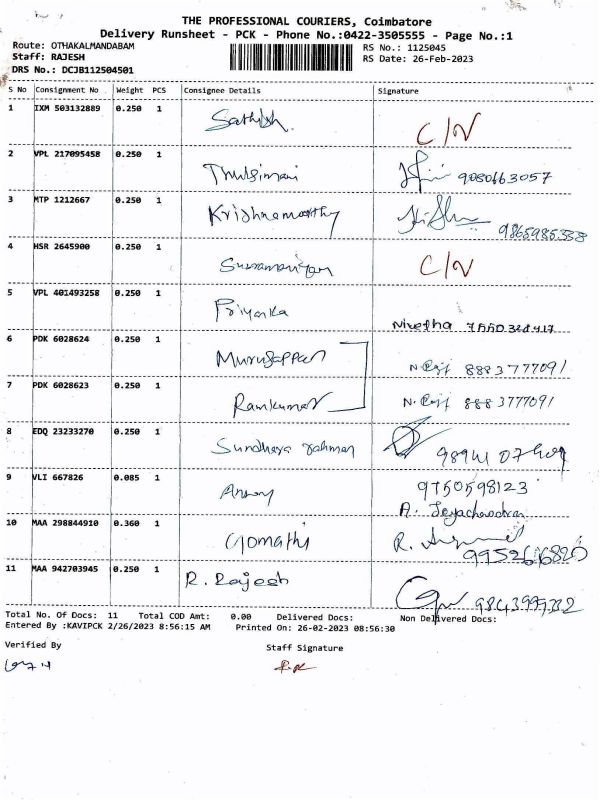 THE PROFESSIONAL COURIERS, Coimbatore
Delivery Runsheet - PCK - Phone No.:0422-3505555 - Page No.:1
Route: OTHAKALMANDABAM
RS No.: 1125045
Staff: RAJESH
RS Date: 26-Feb-2023
DRS No.: DCJB112504501
S No Consignment No Weight PCS Consignee Details Signature
1 IXM 503132889 0.250 1 Sathish. C/N
2 VPL 217095458 0.250 1 Thulsimani 9080663057
3 MTP 1212667 0.250 1 Krishnamoorthy
4 HSR 2645900 0.250 1 C/N
5 VPL 401493258 0.250 1 Priyanka Nivetha
6 PDK 6028624 0.250 1 Murugappan 8883777091
7 PDK 6028623 0.250 1 Ramkumar 8883777091
8 EDQ 23233270 0.250 1
9 VLI 667826 0.085 1 9750598123
A. Jeyachandran
10 MAA 298844910 0.360 1 Gomathi R.
11 MAA 942703945 0.250 1 R. Rajesh
Total No. Of Docs: 11 Total COD Amt: 0.00 Delivered Docs: Non Delivered Docs:
Entered By :KAVIPCK 2/26/2023 8:56:15 AM Printed On: 26-02-2023 08:56:30
Verified By
Staff Signature